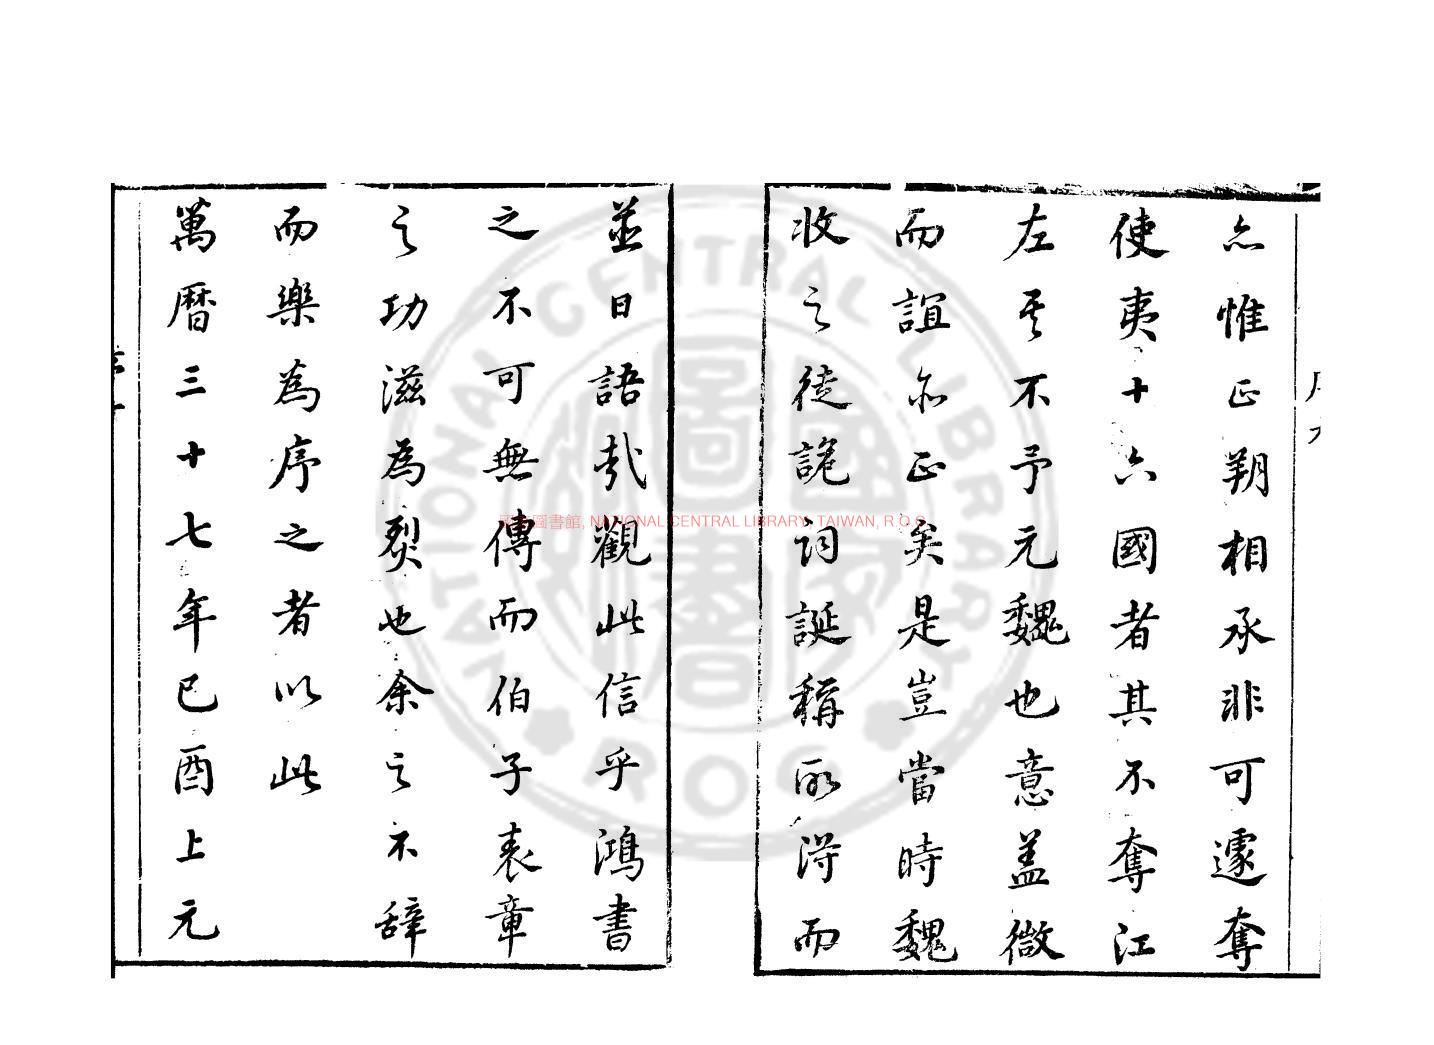 亦惟正朔相承非可遽奪
使夷十六國者其不奪江
左季不予元魏也意盖微
而誼亦正矣是豈當時魏
收之徒詭詞誕稱所得而
並日語哉觀此信乎鴻書
之不可無傳而伯子表章
之功滋為烈也余之不辞
而樂為序之者以此
萬曆三十七年己酉上元
國家圖書館, NATIONAL CENTRAL LIBRARY, TAIWAN, R.O.C
NATIONAL CENTRAL LIBRARY
TAIWAN
ROC